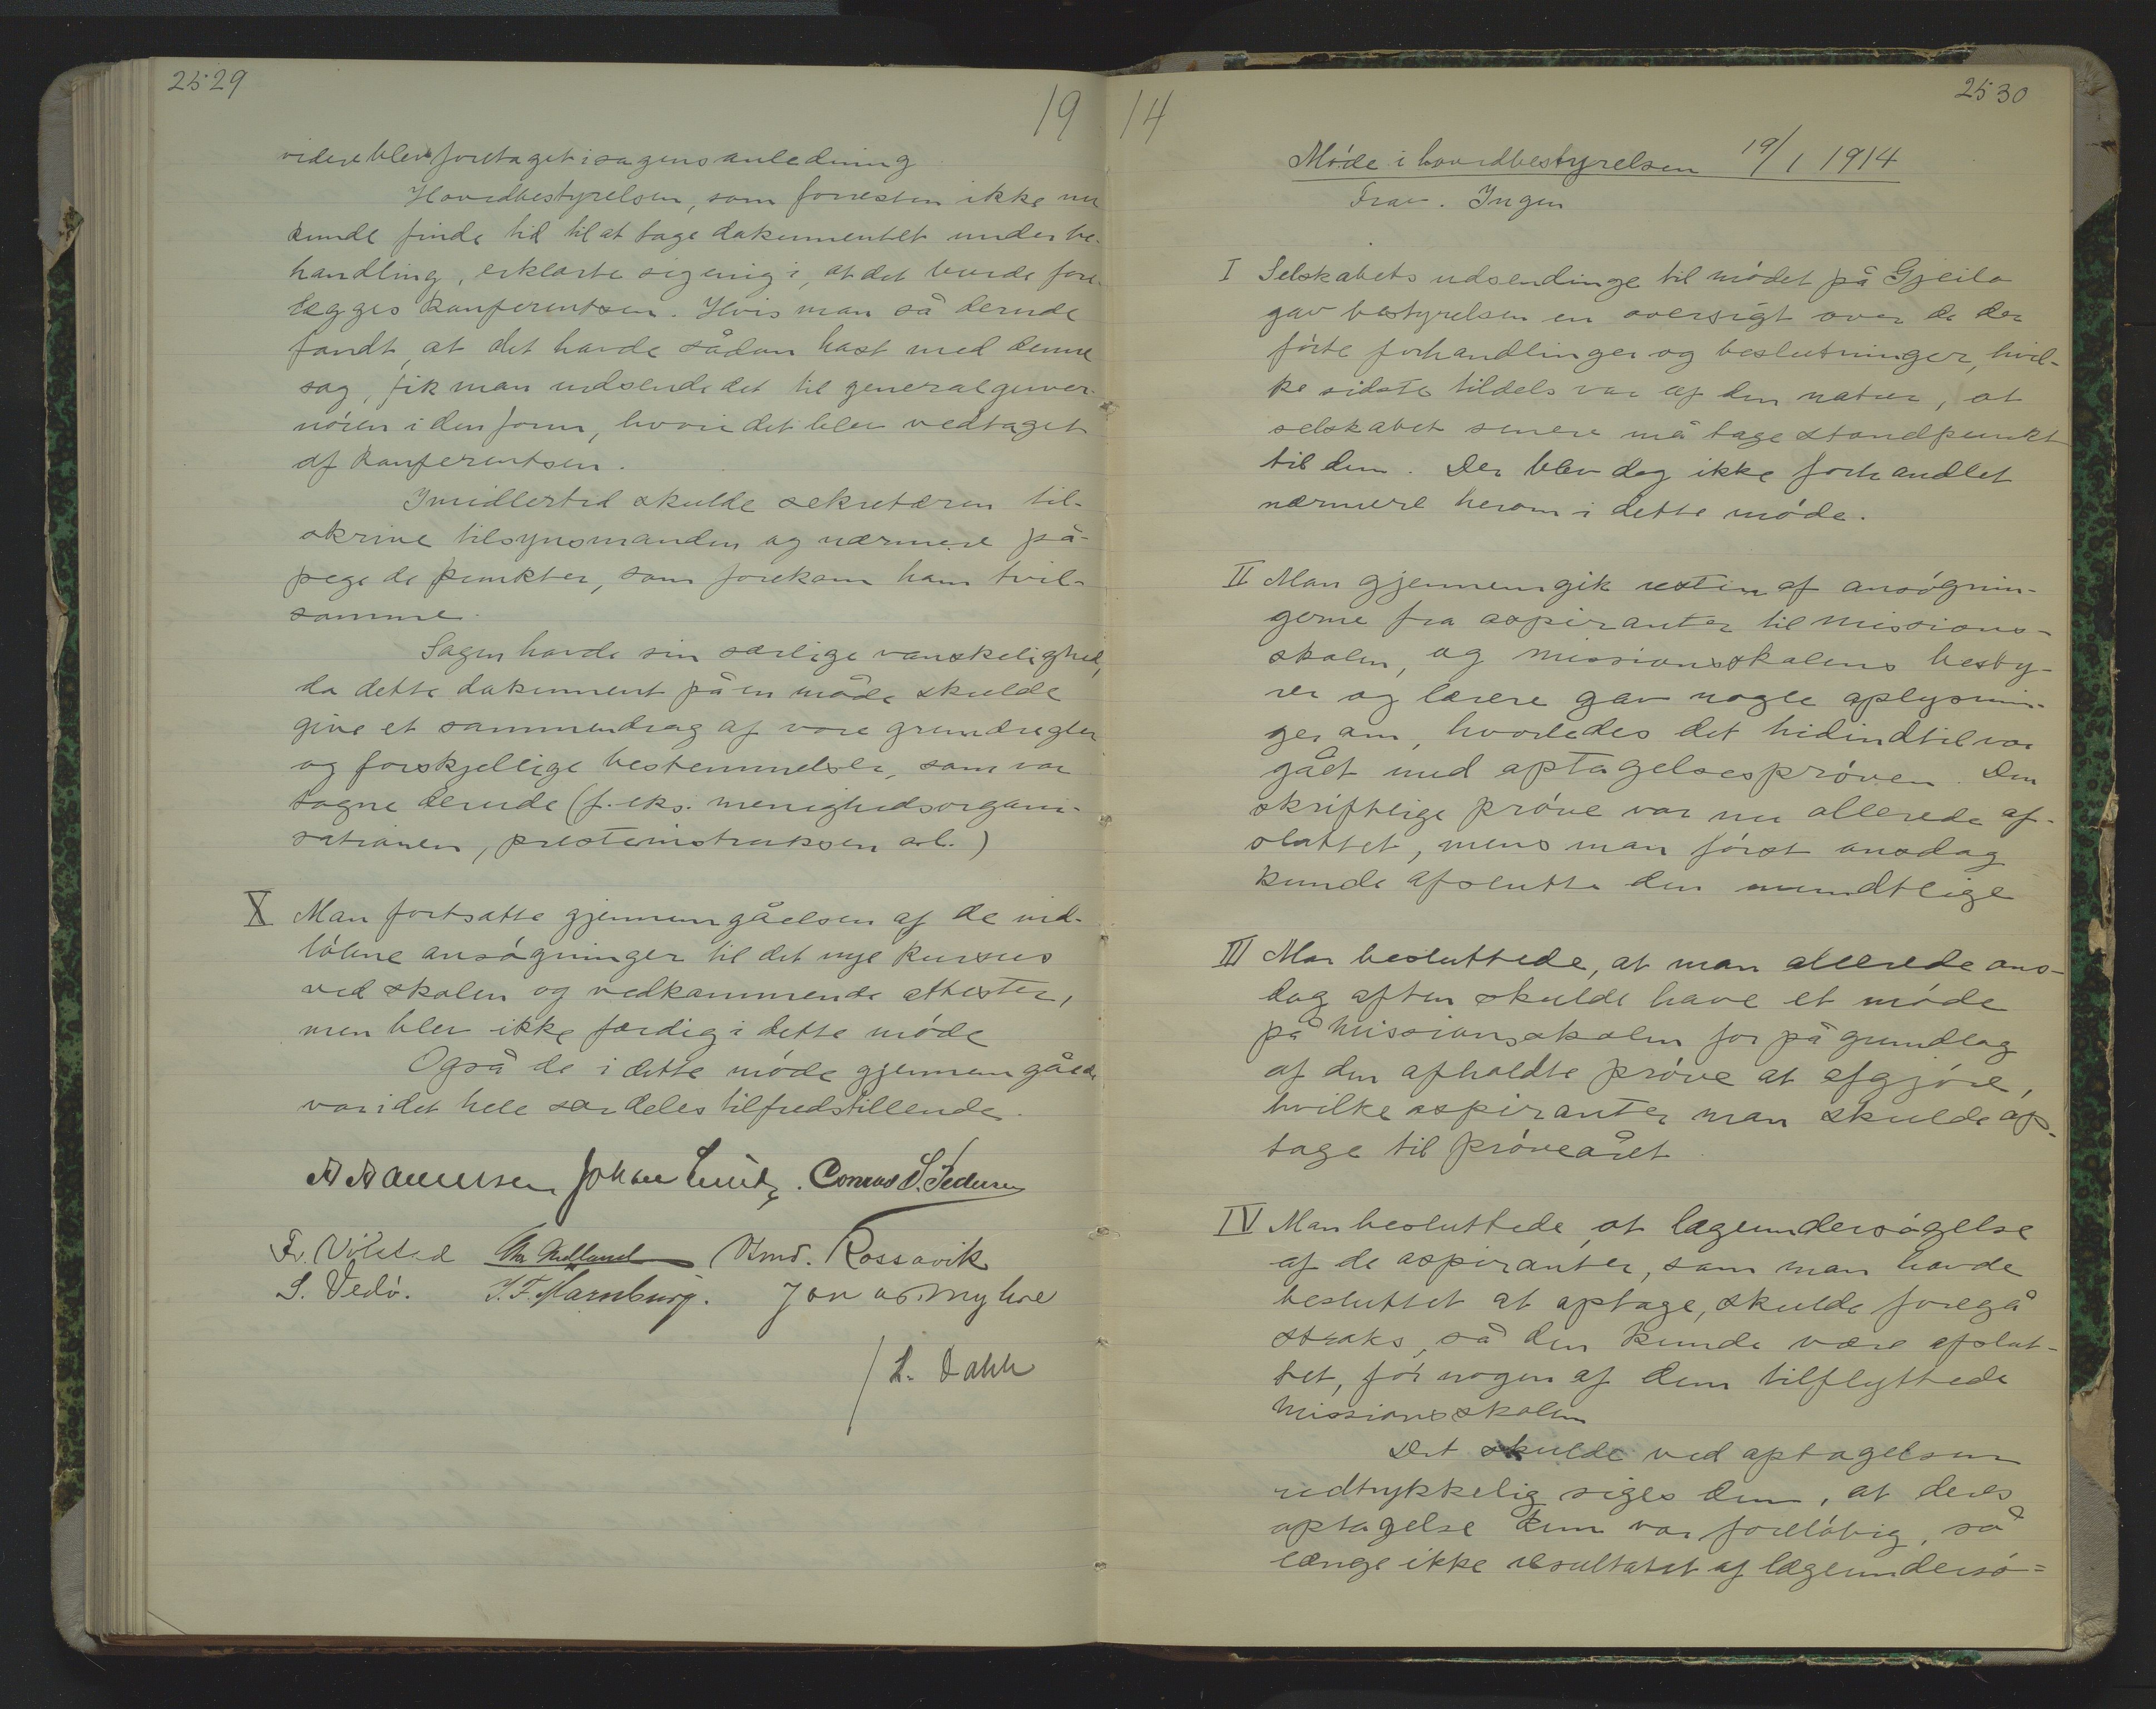 2529
19
videre blev foretaget i sagens anledning
Hovedbestyrelsen, som forresten ikke nu
kunde finde tid til at tage dokumentet under be-
handling, erklærte sig enig i, at det burde fore-
lægges konferentsen. Hvis man så derude
fandt, at det havde sådan hast med denne
sag, fik man udsende det til generalguver-
nören i den form, hvori det blev vedtaget
af konferentsen.
Imidlertid skulde sekretæren til-
skrive tilsynsmanden og nærmere på-
pege de punkter, som forekom ham tvil-
somme.
Sagen havde sin særlige vanskelighed,
da dette dokument på en måde skulde
give et sammendrag af vore grundregler
og forskjellige bestemmelser, som var
tagne derude (f. eks. menighedsorgani-
sationen, presteinstruksen osl.)
X Man fortsatte gjennemgåelsen af de ind-
löbne ansögninger til det nye kursus
ved skolen og vedkommende attester,
men blev ikke færdig i dette möde
Også de i dette möde gjennemgåede
var i det hele særdeles tilfredstillende.
Johan Conrad S. Pedersen
Fr. Völsted Rossavik
S. Vedö. J. F. Marnburg. Jon os. Myhre
/ L. Dahle
14
2530
Möde i hovedbestyrelsen 19/1 1914
Frav. Ingen
I Selskabets udsendinge til mödet på Gjeilo
gav bestyrelsen en oversigt over de der
förte forhandlinger og beslutninger, hvil-
ke sidste tildels var af den natur, at
selskabet senere må tage standpunkt
til dem. Der blev dog ikke forhandlet
nærmere herom i dette möde.
II Man gjennemgik resten af ansögnin-
gerne fra aspiranter til missions-
skolen, og missionsskolens besty-
rer og lærere gav nogle oplysnin-
ger om, hvorledes det hidindtil var
gået med optagelsespröven. Den
skriftlige pröve var nu allerede af-
sluttet, mens man först onsdag
kunde afslutte den mundtlige
III Man besluttede, at man allerede ons-
dag aften skulde have et möde
på missionsskolen for på grundlag
af den afholdte pröve at afgjöre,
hvilke aspiranter man skulde op-
tage til pröveåret
IV Man besluttede, at lægeundersögelse
af de aspiranter, som man havde
besluttet at optage, skulde foregå
straks, så den kunde være afslut-
tet, för nogen af dem tilflyttede
missionsskolen
Det skulde ved optagelsen
udtrykkelig siges dem, at deres
optagelse kun var forelöbig, så
længe ikke resultatet af lægeundersö=